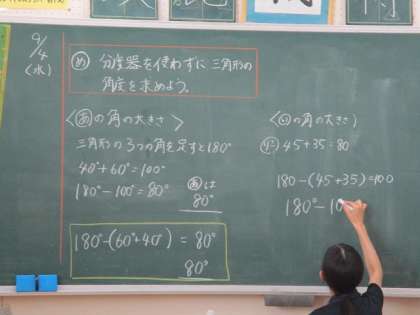 9/4
(水)
め 分度器を使わずに三角形の
角度を求めよう。
<あの角の大きさ>
三角形の3つの角を足すと180°
40°+60°=100°
180°-100°=80°
あは
80°
180°-(60°+40°)=80°
80°
<いの角の大きさ>
45+35=80
180-(45+35)=100
180°-10